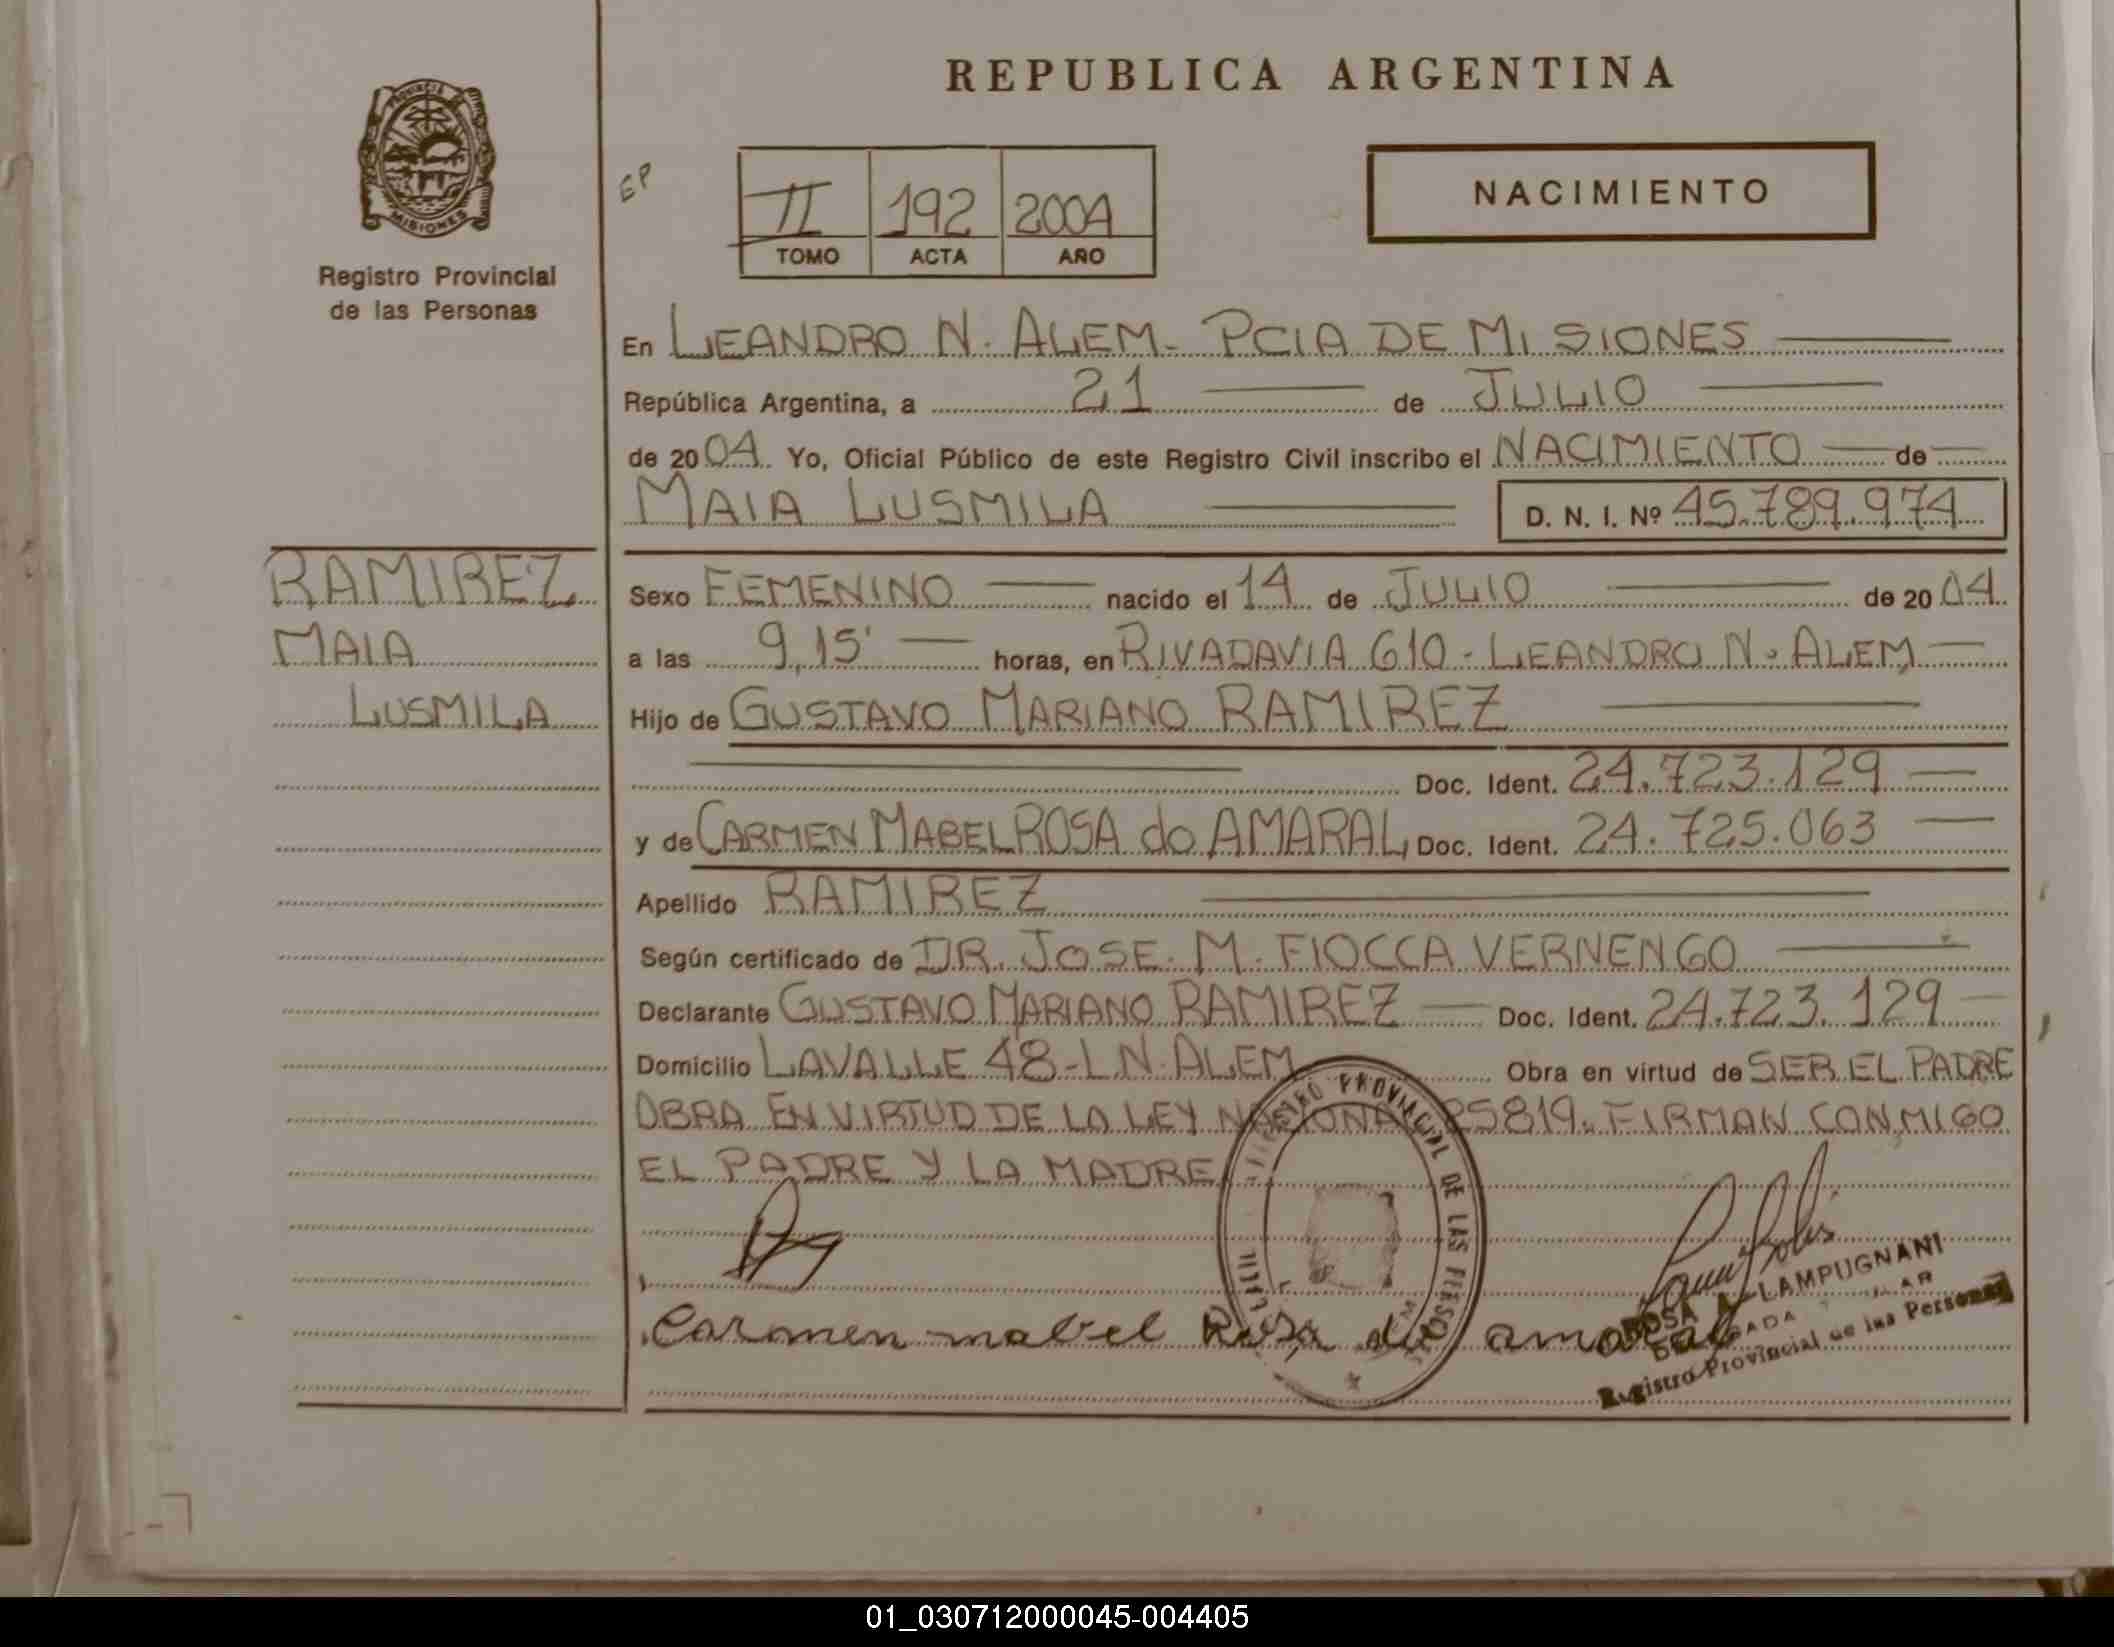 REPUBLICA ARGENTINA
PROVINCIA DE
MISIONES
Registro Provincial
de las Personas
EP
II 192 2004
TOMO ACTA AÑO
NACIMIENTO
En LEANDRO N. ALEM - PCIA DE MISIONES
República Argentina, a 21 de JULIO
de 2004. Yo, Oficial Público de este Registro Civil inscribo el NACIMIENTO de
MAIA LUSMILA D. N. I. Nº 45.789.974
RAMIREZ
MAIA
LUSMILA
Sexo FEMENINO nacido el 14 de JULIO de 2004
a las 9,15' horas, en RIVADAVIA 610 - LEANDRO N. ALEM
Hijo de GUSTAVO MARIANO RAMIREZ
Doc. Ident. 24.723.129
y de CARMEN MABEL ROSA do AMARAL, Doc. Ident. 24.725.063
Apellido RAMIREZ
Según certificado de DR. JOSE. M. FIOCCA VERNENGO
Declarante GUSTAVO MARIANO RAMIREZ Doc. Ident. 24.723.129
Domicilio LAVALLE 48 - L N. ALEM Obra en virtud de SER EL PADRE
OBRA EN VIRTUD DE LA LEY NACIONAL 25819. FIRMAN CONMIGO
EL PADRE Y LA MADRE
REGISTRO PROVINCIAL DE LAS PERSONAS
Carmen mabel Rosa do amaral
ROSA A. LAMPUGNANI
DELEGADA
Registro Provincial de las Personas
01_030712000045-004405